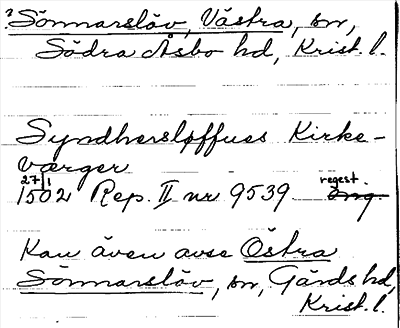 ? Sönnarslöv, Västra, sn,
Södra Åsbo hd, Krist. l.
Syndhersløffues Kirke-
værger
27/1 1502 Rep. II nr 9539 regest. Orig.
Kan även avse Östra
Sönnarslöv, sn, Gärds hd,
Krist. l.